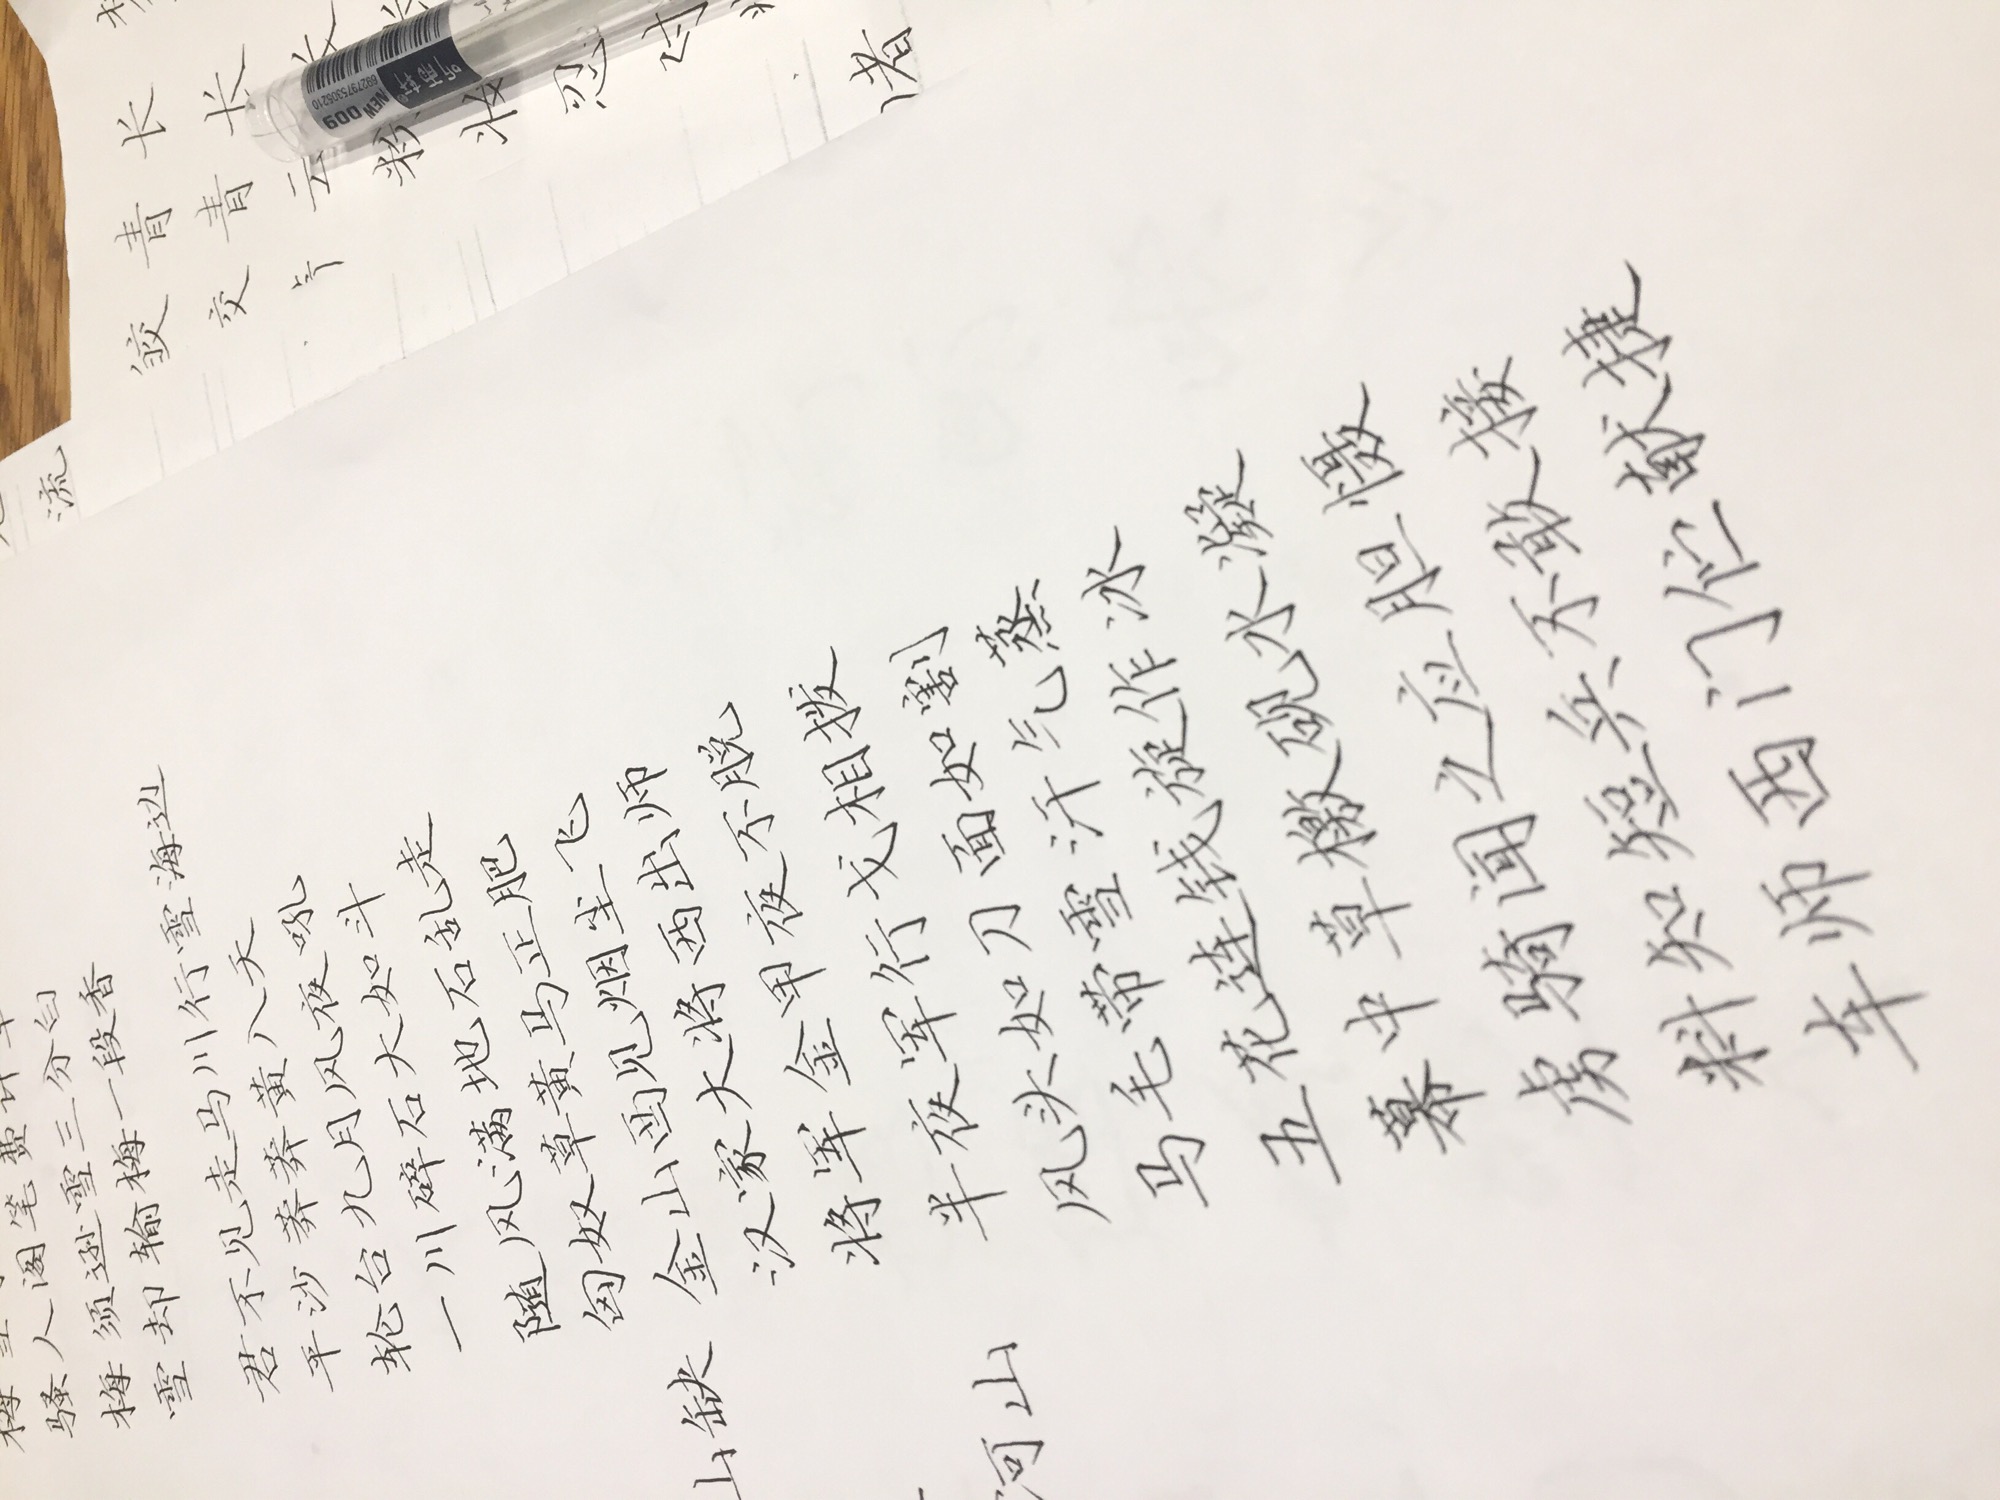 骚人阁笔费评章
梅须逊雪三分白
雪却输梅一段香
君不见走马川行雪海边
平沙莽莽黄入天
轮台九月风夜吼
一川碎石大如斗
随风满地石乱走
匈奴草黄马正肥
金山西见烟尘飞
汉家大将西出师
将军金甲夜不脱
半夜军行戈相拨
风头如刀面如割
马毛带雪汗气蒸
五花连钱旋作冰
幕中草檄砚水凝
虏骑闻之应胆慑
料知短兵不敢接
车师西门伫献捷
山缺
河山
皎青长
交青长
云
粉
妆
忍
诸
流
NEW 009